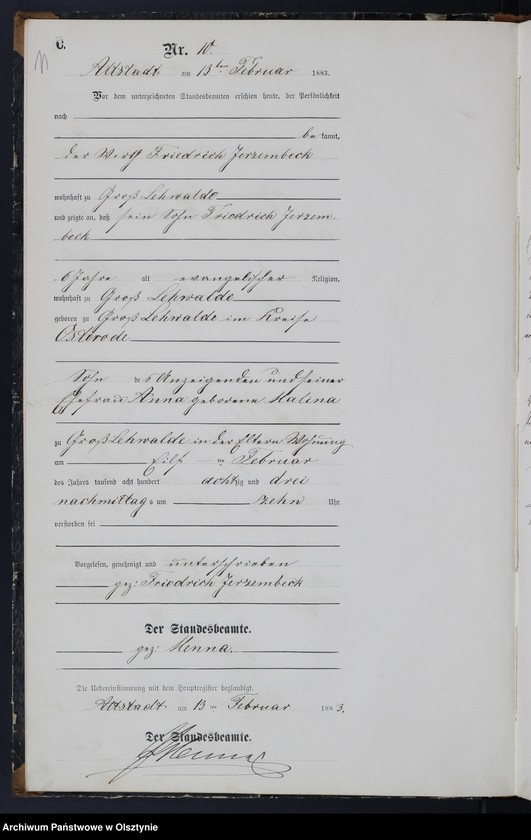 C.
Nr. 10.
Altstadt am 13ten Februar 1883.
Vor dem unterzeichneten Standesbeamten erschien heute, der Persönlichkeit
nach
be kannt,
der Wirth Friedrich Jerzembeck
wohnhaft zu Groß Lehwalde
und zeigte an, daß sein Sohn Friedrich Jerzem-
beck
6 Jahre alt evangelischer Religion,
wohnhaft zu Groß Lehwalde
geboren zu Groß Lehwalde im Kreise
Osterode
Sohn des Anzeigenden und seiner
Ehefrau Anna geborene Malina
zu Groß Lehwalde in der Eltern Wohnung
am Eilf ten Februar
des Jahres tausend acht hundert achtzig und drei
nachmittags um zehn Uhr
verstorben sei
Vorgelesen, genehmigt und unterschrieben
gez: Friedrich Jerzembeck
Der Standesbeamte.
gez: Menna.
Die Uebereinstimmung mit dem Hauptregister beglaubigt.
Altstadt am 13ten Februar 1883.
Der Standesbeamte.
Menna
Archiwum Państwowe w Olsztynie